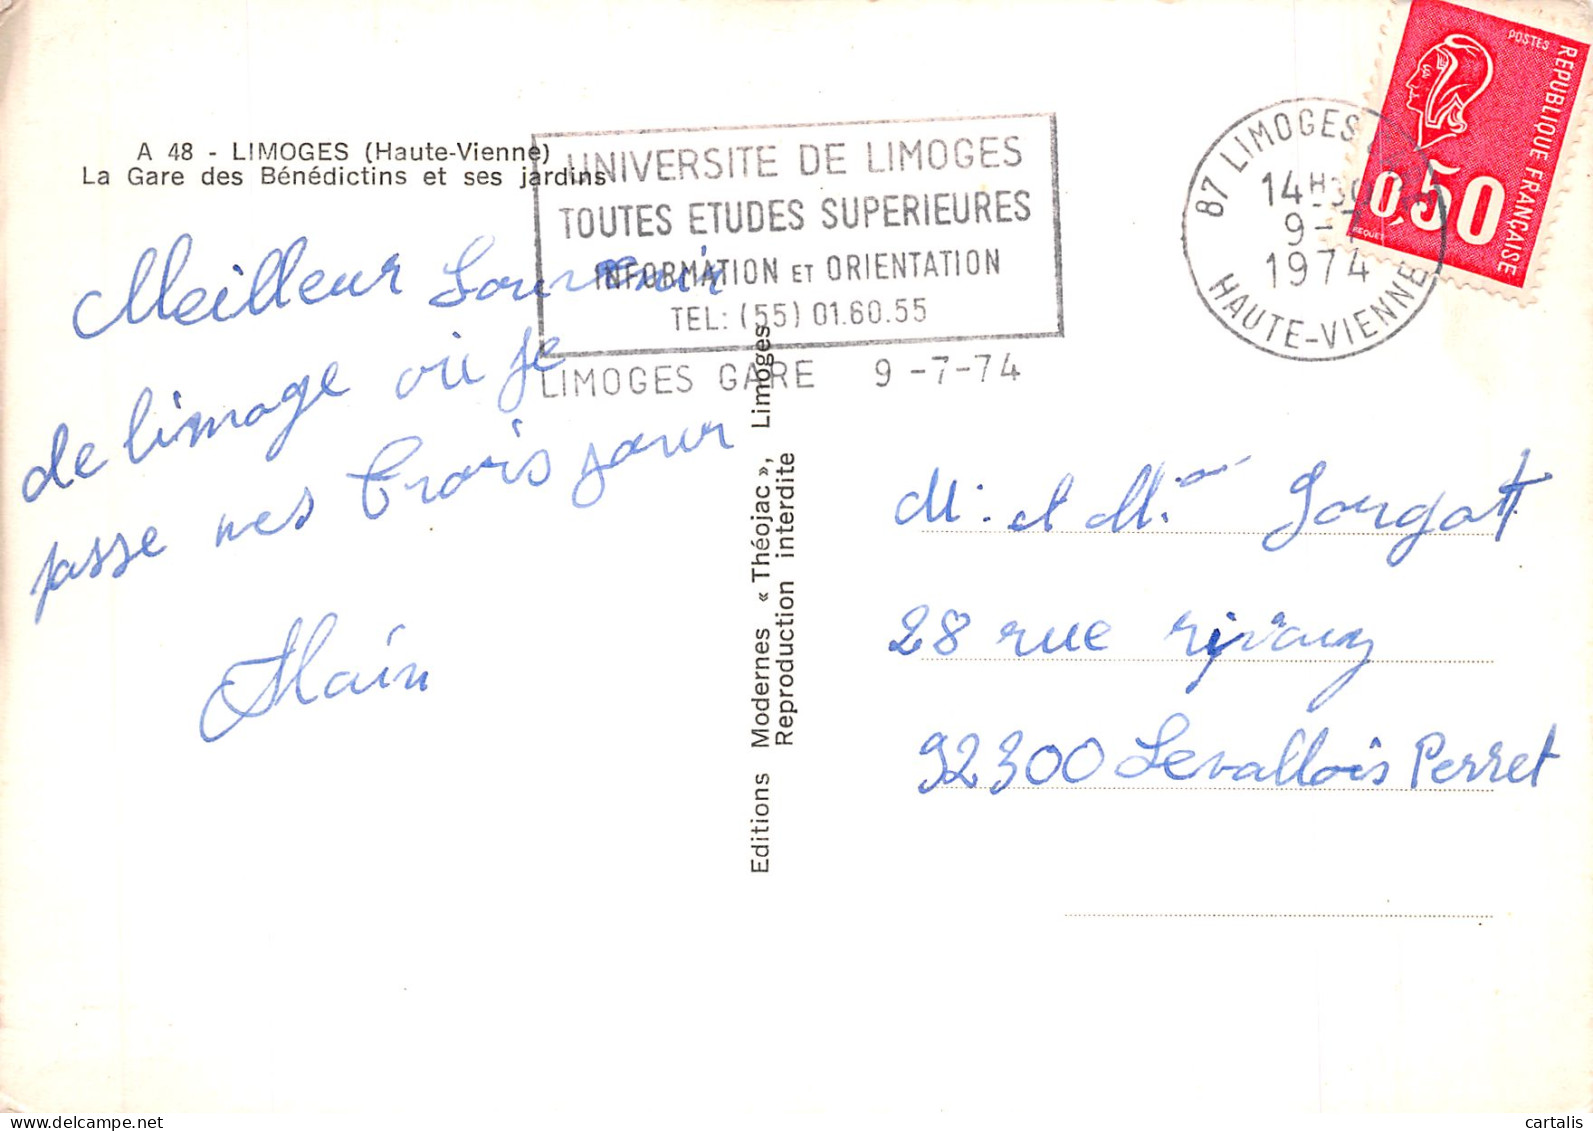 A 48 - LIMOGES (Haute-Vienne)
La Gare des Bénédictins et ses jardins
UNIVERSITE DE LIMOGES
TOUTES ETUDES SUPERIEURES
INFORMATION ET ORIENTATION
TEL: (55) 01.60.55
LIMOGES GARE 9-7-74
87 LIMOGES
14H30
9-7
1974
HAUTE-VIENNE
POSTES
REPUBLIQUE FRANÇAISE
0,50
BEQUET
Meilleur Souvenir
de limoge où je
passe mes trois jour
Alain
Editions Modernes « Théojac », Limoges
Reproduction interdite
M. et Mme Gourgott
28 rue rivay
92300 Levallois Perret
cartalis